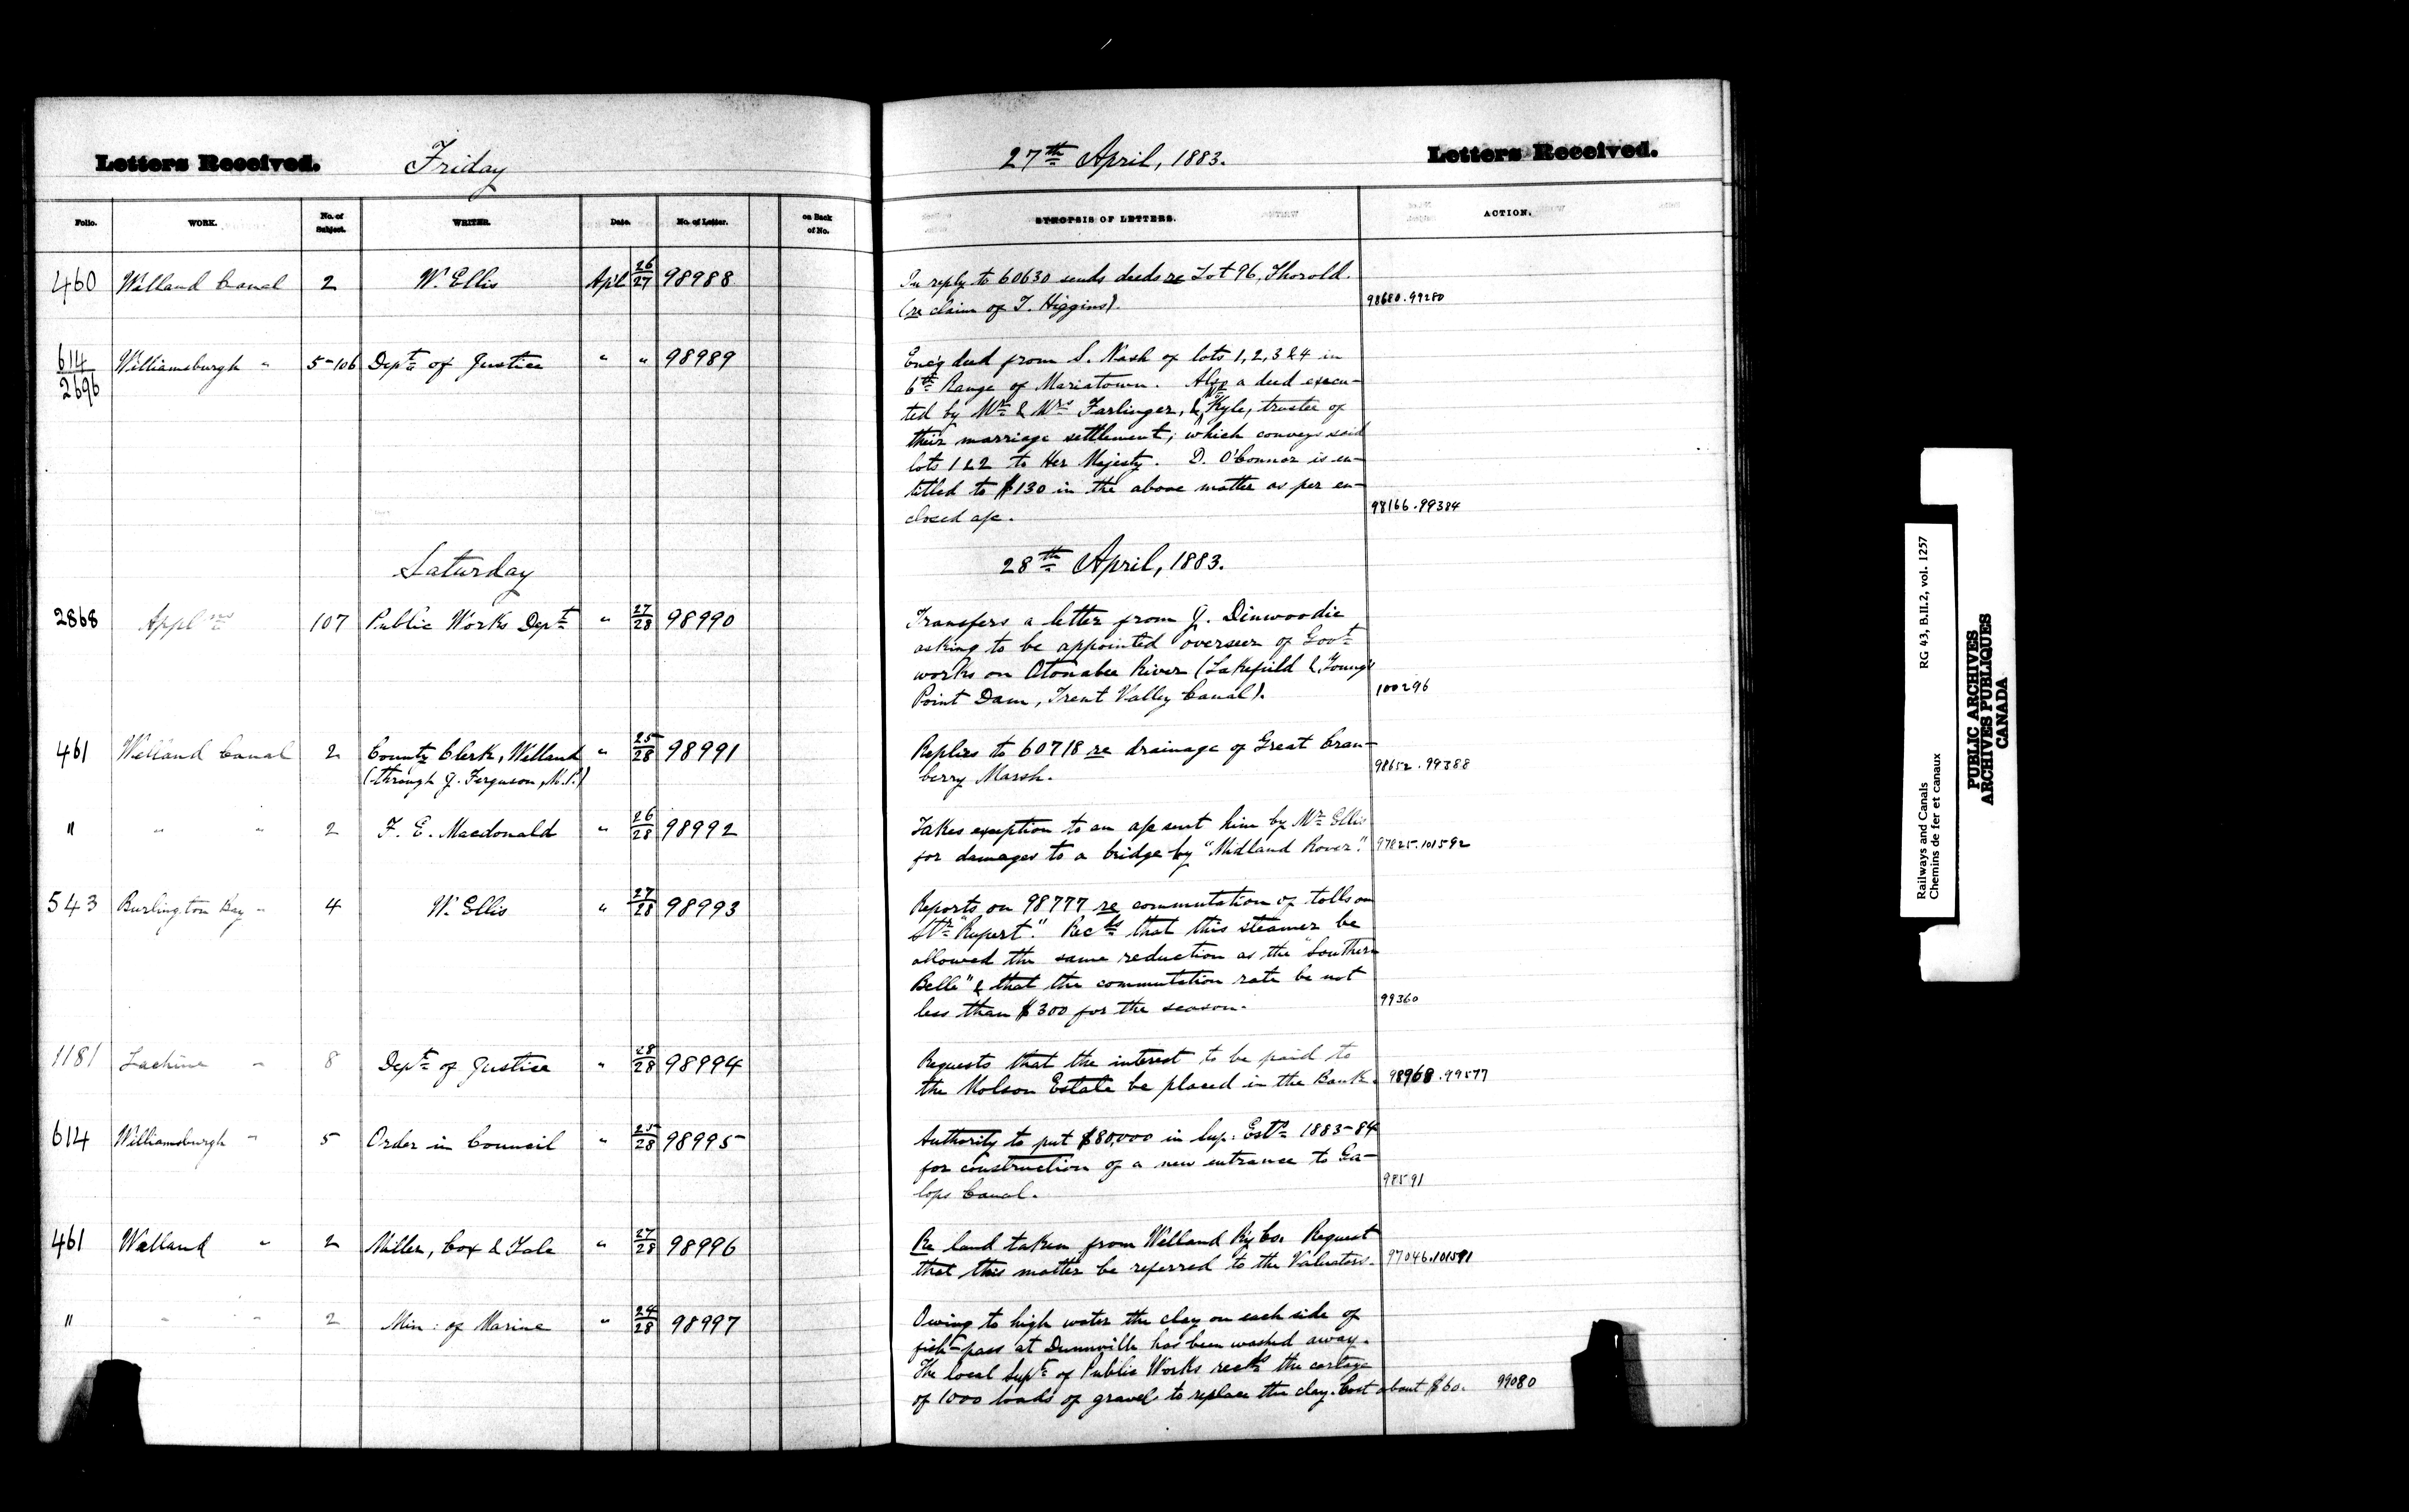 Letters Received. Friday 27th April, 1883. Letters Received.
Folio. WORK. No. of Subject. WRITER. Date. No. of Letter. on Back of No. SYNOPSIS OF LETTERS. ACTION.
460 Welland Canal 2 W. Ellis Apl 26/27 98988 In reply to 60630 sends deeds re Lot 96, Thorold.
(re claim of T. Higgins). 98680.99280
614/2696 Williamsburgh " 5-106 Dept of Justice " " 98989 Enc'g deed from S. Nash of lots 1, 2, 3 & 4 in
6th Range of Mariatown. Also a deed execu-
ted by Mr & Mrs Farlinger, & Mr Kyle, trustee of
their marriage settlement; which conveys said
lots 1 & 2 to Her Majesty. D. O'Connor is en-
titled to $130 in the above matter as per en-
closed a/c. 98166.99384
Saturday 28th April, 1883.
2868 Applns 107 Public Works Dept " 27/28 98990 Transfers a letter from J. Dinwoodie
asking to be appointed overseer of Govt
works on Otonabee River (Lakefield & Young's
Point Dam, Trent Valley Canal). 100296
461 Welland Canal 2 County Clerk, Welland " 25/28 98991 Replies to 60718 re drainage of Great Cran-
(through J. Ferguson, M.P.) berry Marsh. 98652.99388
" " " 2 F. E. Macdonald " 26/28 98992 Takes exception to an a/c sent him by Mr Ellis
for damages to a bridge by "Midland Rover." 97825.101592
543 Burlington Bay " 4 W. Ellis " 27/28 98993 Reports on 98777 re commutation of tolls on
Str "Rupert." Recds that this steamer be
allowed the same reduction as the "Southern
Belle" & that the commutation rate be not
less than $300 for the season. 99360
1181 Lachine " 8 Dept of Justice " 28/28 98994 Requests that the interest to be paid to
the Molson Estate be placed in the Bank. 98968.99577
614 Williamsburgh " 5 Order in Council " 25/28 98995 Authority to put $80,000 in Sup: Ests 1883-84
for construction of a new entrance to Ga-
lops Canal. 98591
461 Welland " 2 Miller, Cox & Yale " 27/28 98996 Re land taken from Welland Ry Co. Request
that this matter be referred to the Valuators. 97046.101591
" " " 2 Min: of Marine " 24/28 98997 Owing to high water the clay on each side of
fish-pass at Dunnville has been washed away.
The local Supt of Public Works recds the cartage
of 1000 loads of gravel to replace the clay. Cost about $60. 99080
Railways and Canals RG 43, B.II.2, vol. 1257
Chemins de fer et canaux
PUBLIC ARCHIVES
ARCHIVES PUBLIQUES
CANADA